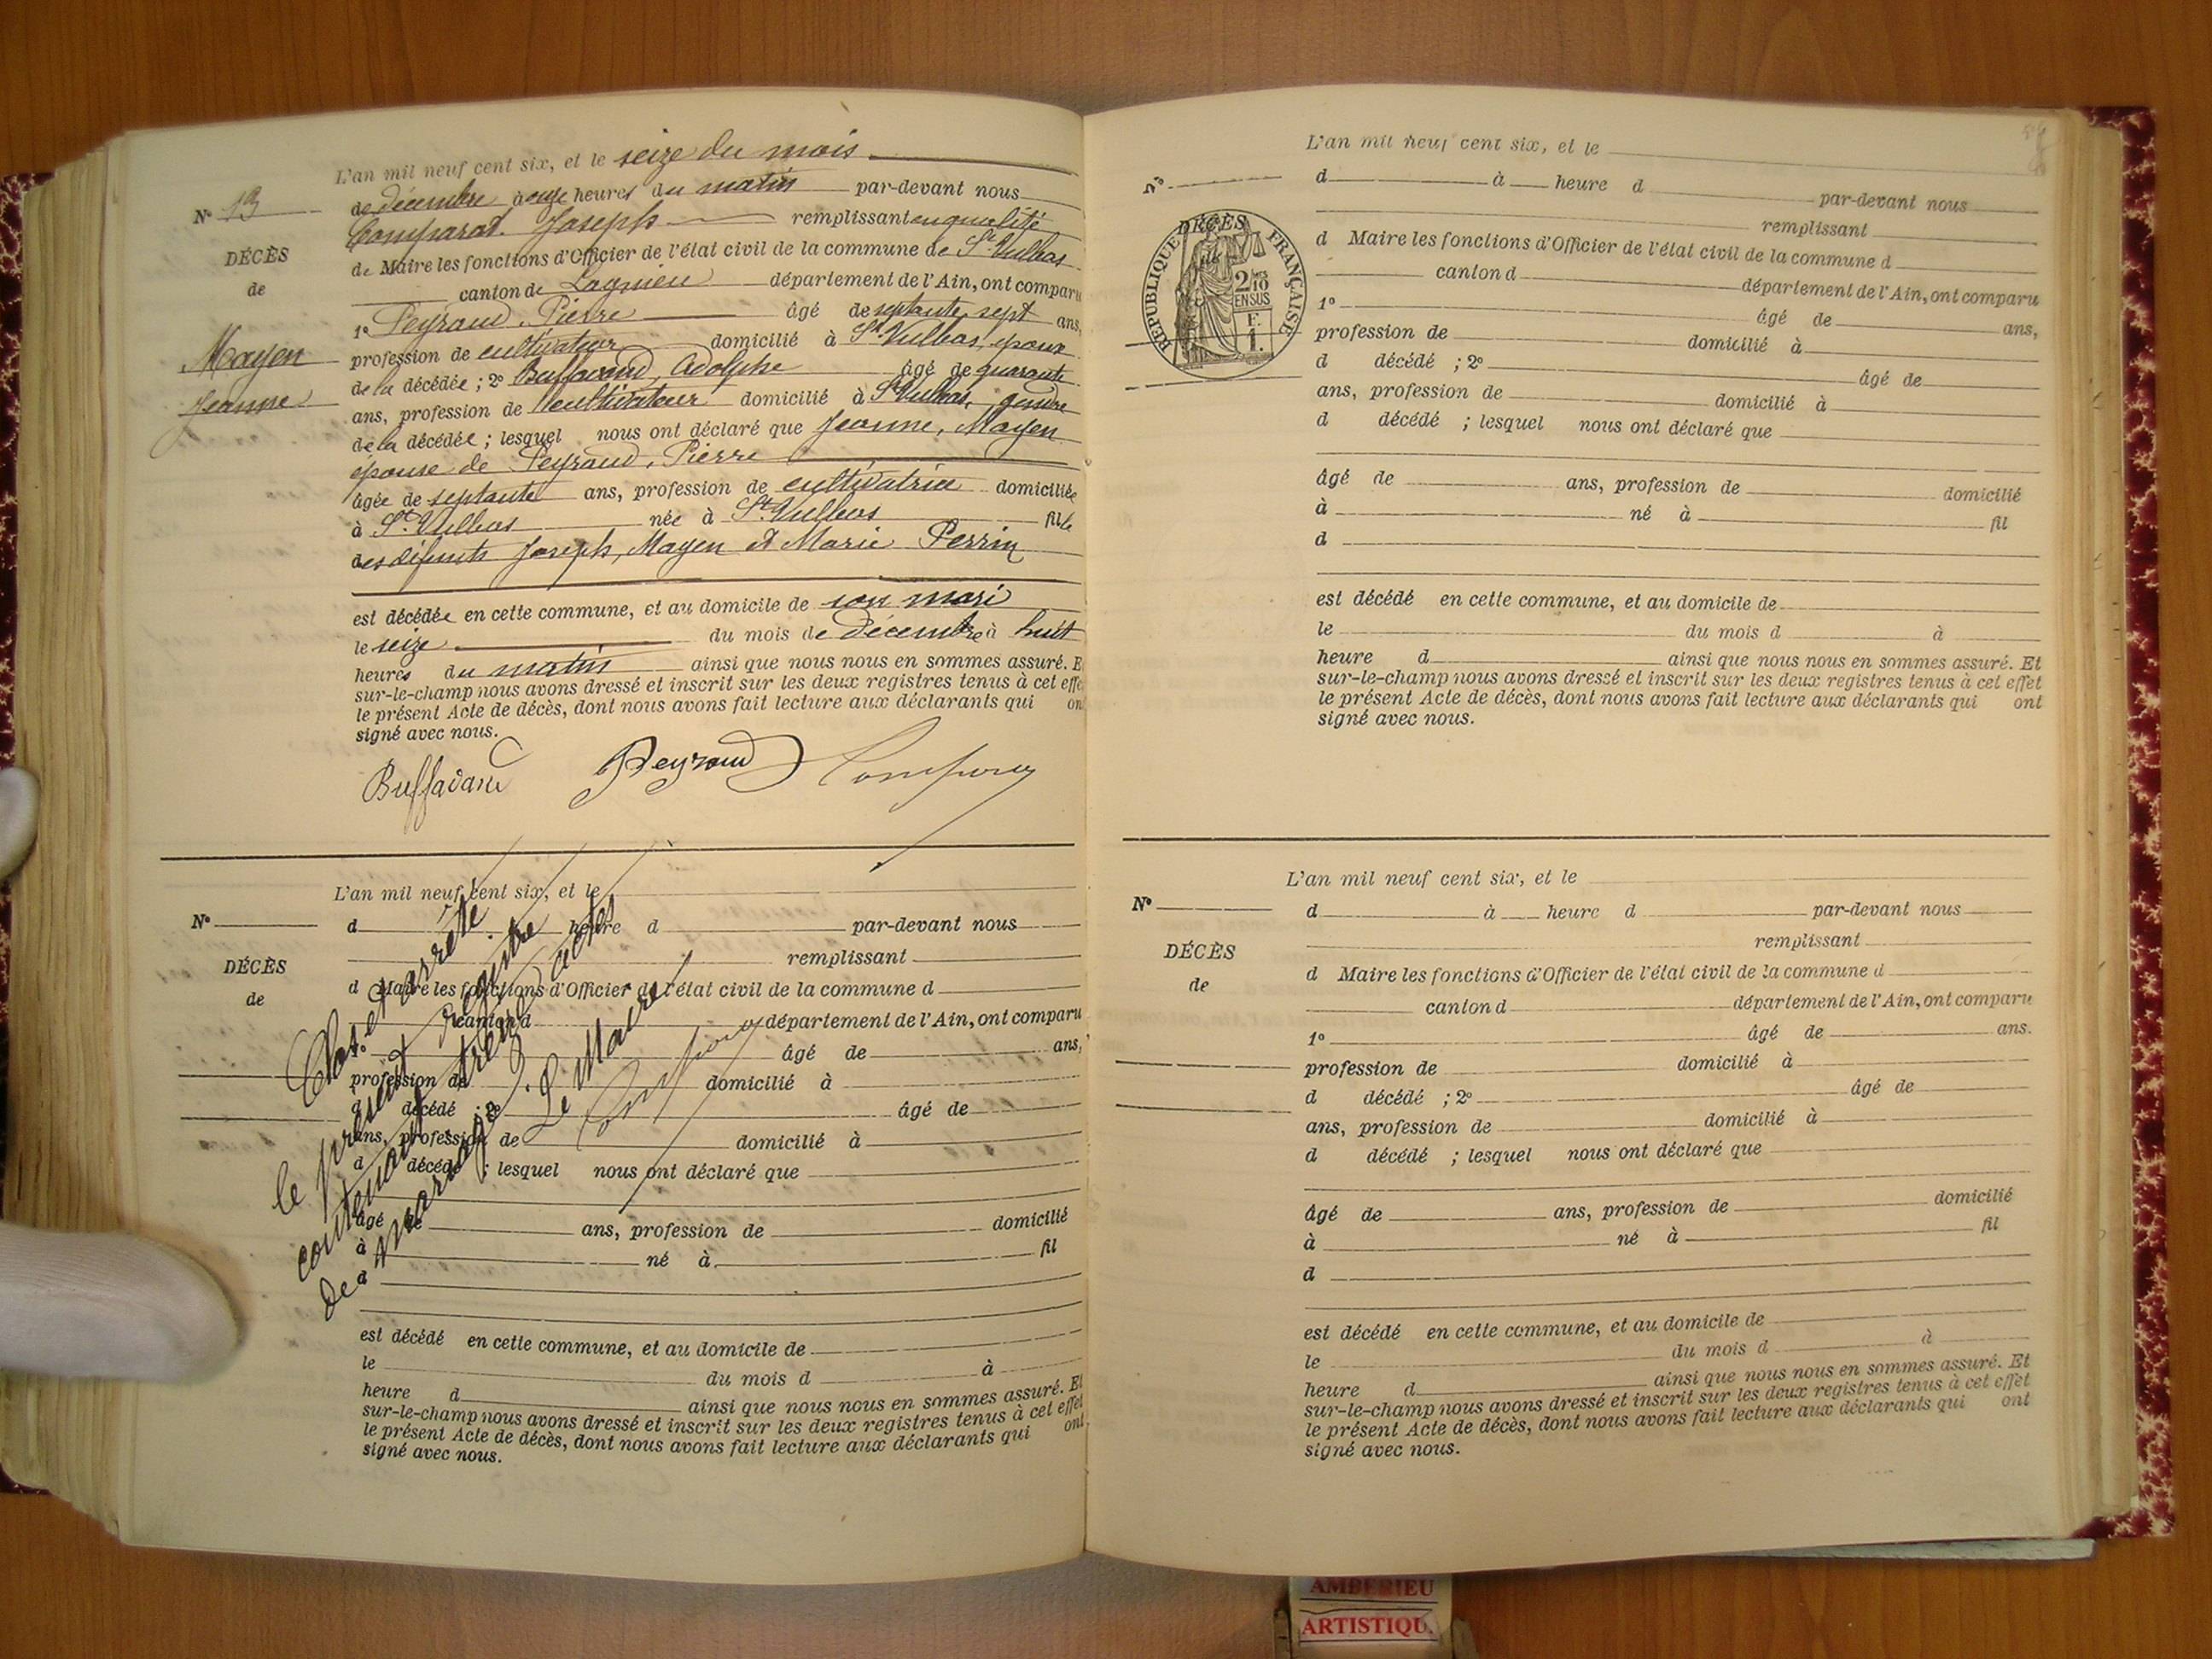 L'an mil neuf cent six, et le seize du mois
de décembre à onze heures du matin par-devant nous
N° 13
Comparat Joseph remplissant en qualité
de Maire les fonctions d'Officier de l'état civil de la commune de St Vulbas
DÉCÈS
de
canton de Lagnieu département de l'Ain, ont comparu
1° Peyraud, Pierre âgé de septante sept ans,
Mayen
profession de cultivateur domicilié à St Vulbas, époux
de la décédée ; 2° Buffavand Adolphe âgé de quarante
Jeanne
ans, profession de cultivateur domicilié à St Vulbas, gendre
de la décédée ; lesquel nous ont déclaré que Jeanne, Mayen
épouse de Peyraud, Pierre
âgée de septante ans, profession de cultivatrice domiciliée
à St Vulbas née à St Vulbas fille
des défunts Joseph, Mayen et Marie Perrin
est décédée en cette commune, et au domicile de son mari
le seize du mois de décembre à huit
heures du matin ainsi que nous nous en sommes assuré. E
sur-le-champ nous avons dressé et inscrit sur les deux registres tenus à cet effe
le présent Acte de décès, dont nous avons fait lecture aux déclarants qui on
signé avec nous.
Buffavand Peyraud
L'an mil neuf cent six, et le
N°
d heure d par-devant nous
remplissant
DÉCÈS
de
d Maire les fonctions d'Officier de l'état civil de la commune d
canton d département de l'Ain, ont comparu
1° âgé de ans,
profession de domicilié à
d décédé ; 2° âgé de
ans, profession de domicilié à
d décédé ; lesquel nous ont déclaré que
âgé de ans, profession de domicilié
à né à fil
d
est décédé en cette commune, et au domicile de
le du mois d à
heure d ainsi que nous nous en sommes assuré. Et
sur-le-champ nous avons dressé et inscrit sur les deux registres tenus à cet effet
le présent Acte de décès, dont nous avons fait lecture aux déclarants qui ont
signé avec nous.
Clos et arrêté
le présent registre
contenant treize actes
de
Le Maire
L'an mil neuf cent six, et le
N°
d à heure d par-devant nous
remplissant
DÉCÈS
de
d Maire les fonctions d'Officier de l'état civil de la commune d
canton d département de l'Ain, ont comparu
RÉPUBLIQUE FRANÇAISE
2 10
EN SUS
F.
1.
1° âgé de ans,
profession de domicilié à
d décédé ; 2° âgé de
ans, profession de domicilié à
d décédé ; lesquel nous ont déclaré que
âgé de ans, profession de domicilié
à né à fil
d
est décédé en cette commune, et au domicile de
le du mois d à
heure d ainsi que nous nous en sommes assuré. Et
sur-le-champ nous avons dressé et inscrit sur les deux registres tenus à cet effet
le présent Acte de décès, dont nous avons fait lecture aux déclarants qui ont
signé avec nous.
L'an mil neuf cent six, et le
N°
d à heure d par-devant nous
remplissant
DÉCÈS
de
d Maire les fonctions d'Officier de l'état civil de la commune d
canton d département de l'Ain, ont comparu
1° âgé de ans.
profession de domicilié à
d décédé ; 2° âgé de
ans, profession de domicilié à
d décédé ; lesquel nous ont déclaré que
âgé de ans, profession de domicilié
à né à fil
d
est décédé en cette commune, et au domicile de
le du mois d à
heure d ainsi que nous nous en sommes assuré. Et
sur-le-champ nous avons dressé et inscrit sur les deux registres tenus à cet effet
le présent Acte de décès, dont nous avons fait lecture aux déclarants qui ont
signé avec nous.
AMBERIEU
ARTISTIQU